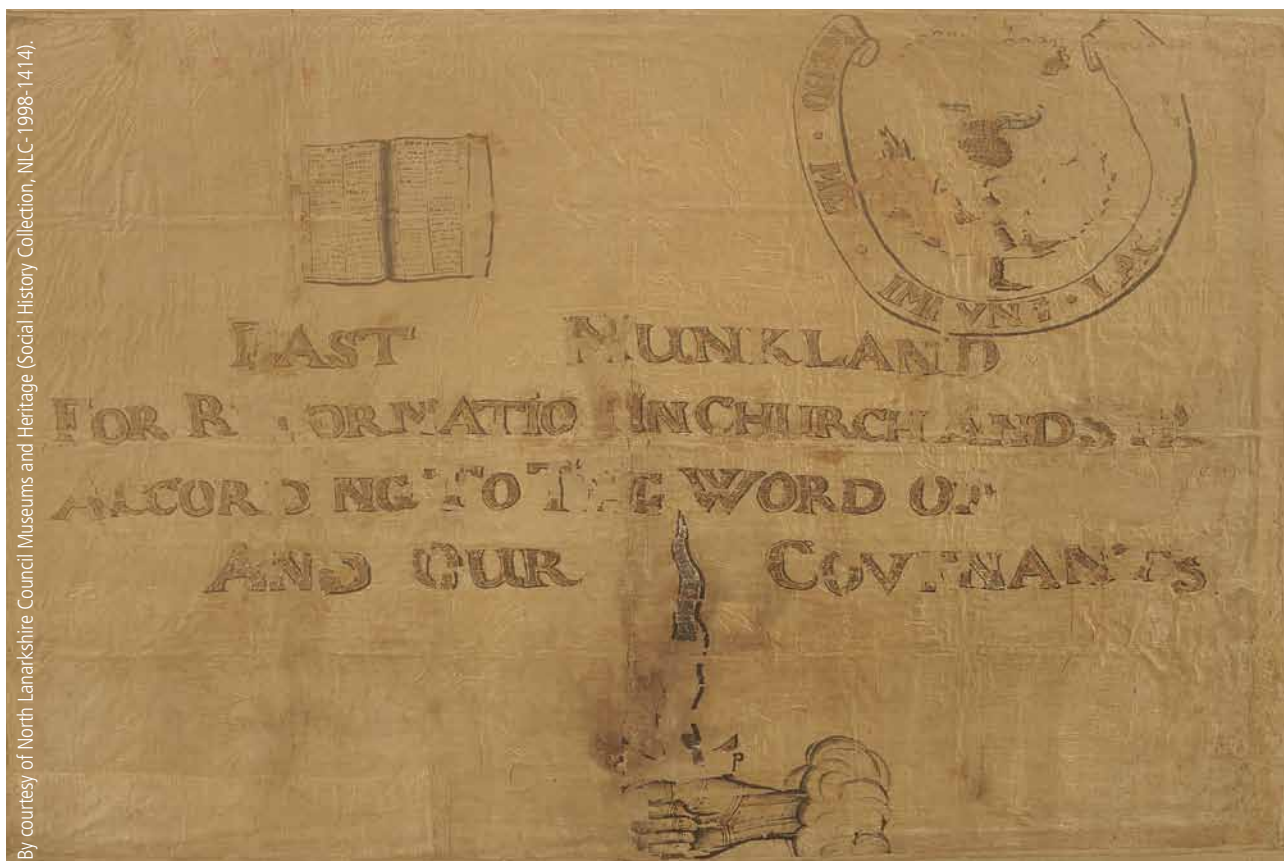 By courtesy of North Lanarkshire Council Museums and Heritage (Social History Collection, NLC-1998-1414).
NEMO · ME · IMPVNE · LAC
EAST MUNKLAND
FOR REFORMATION IN CHURCH AND STATE
ACCORDING TO THE WORD OF
AND OUR COVENANTS